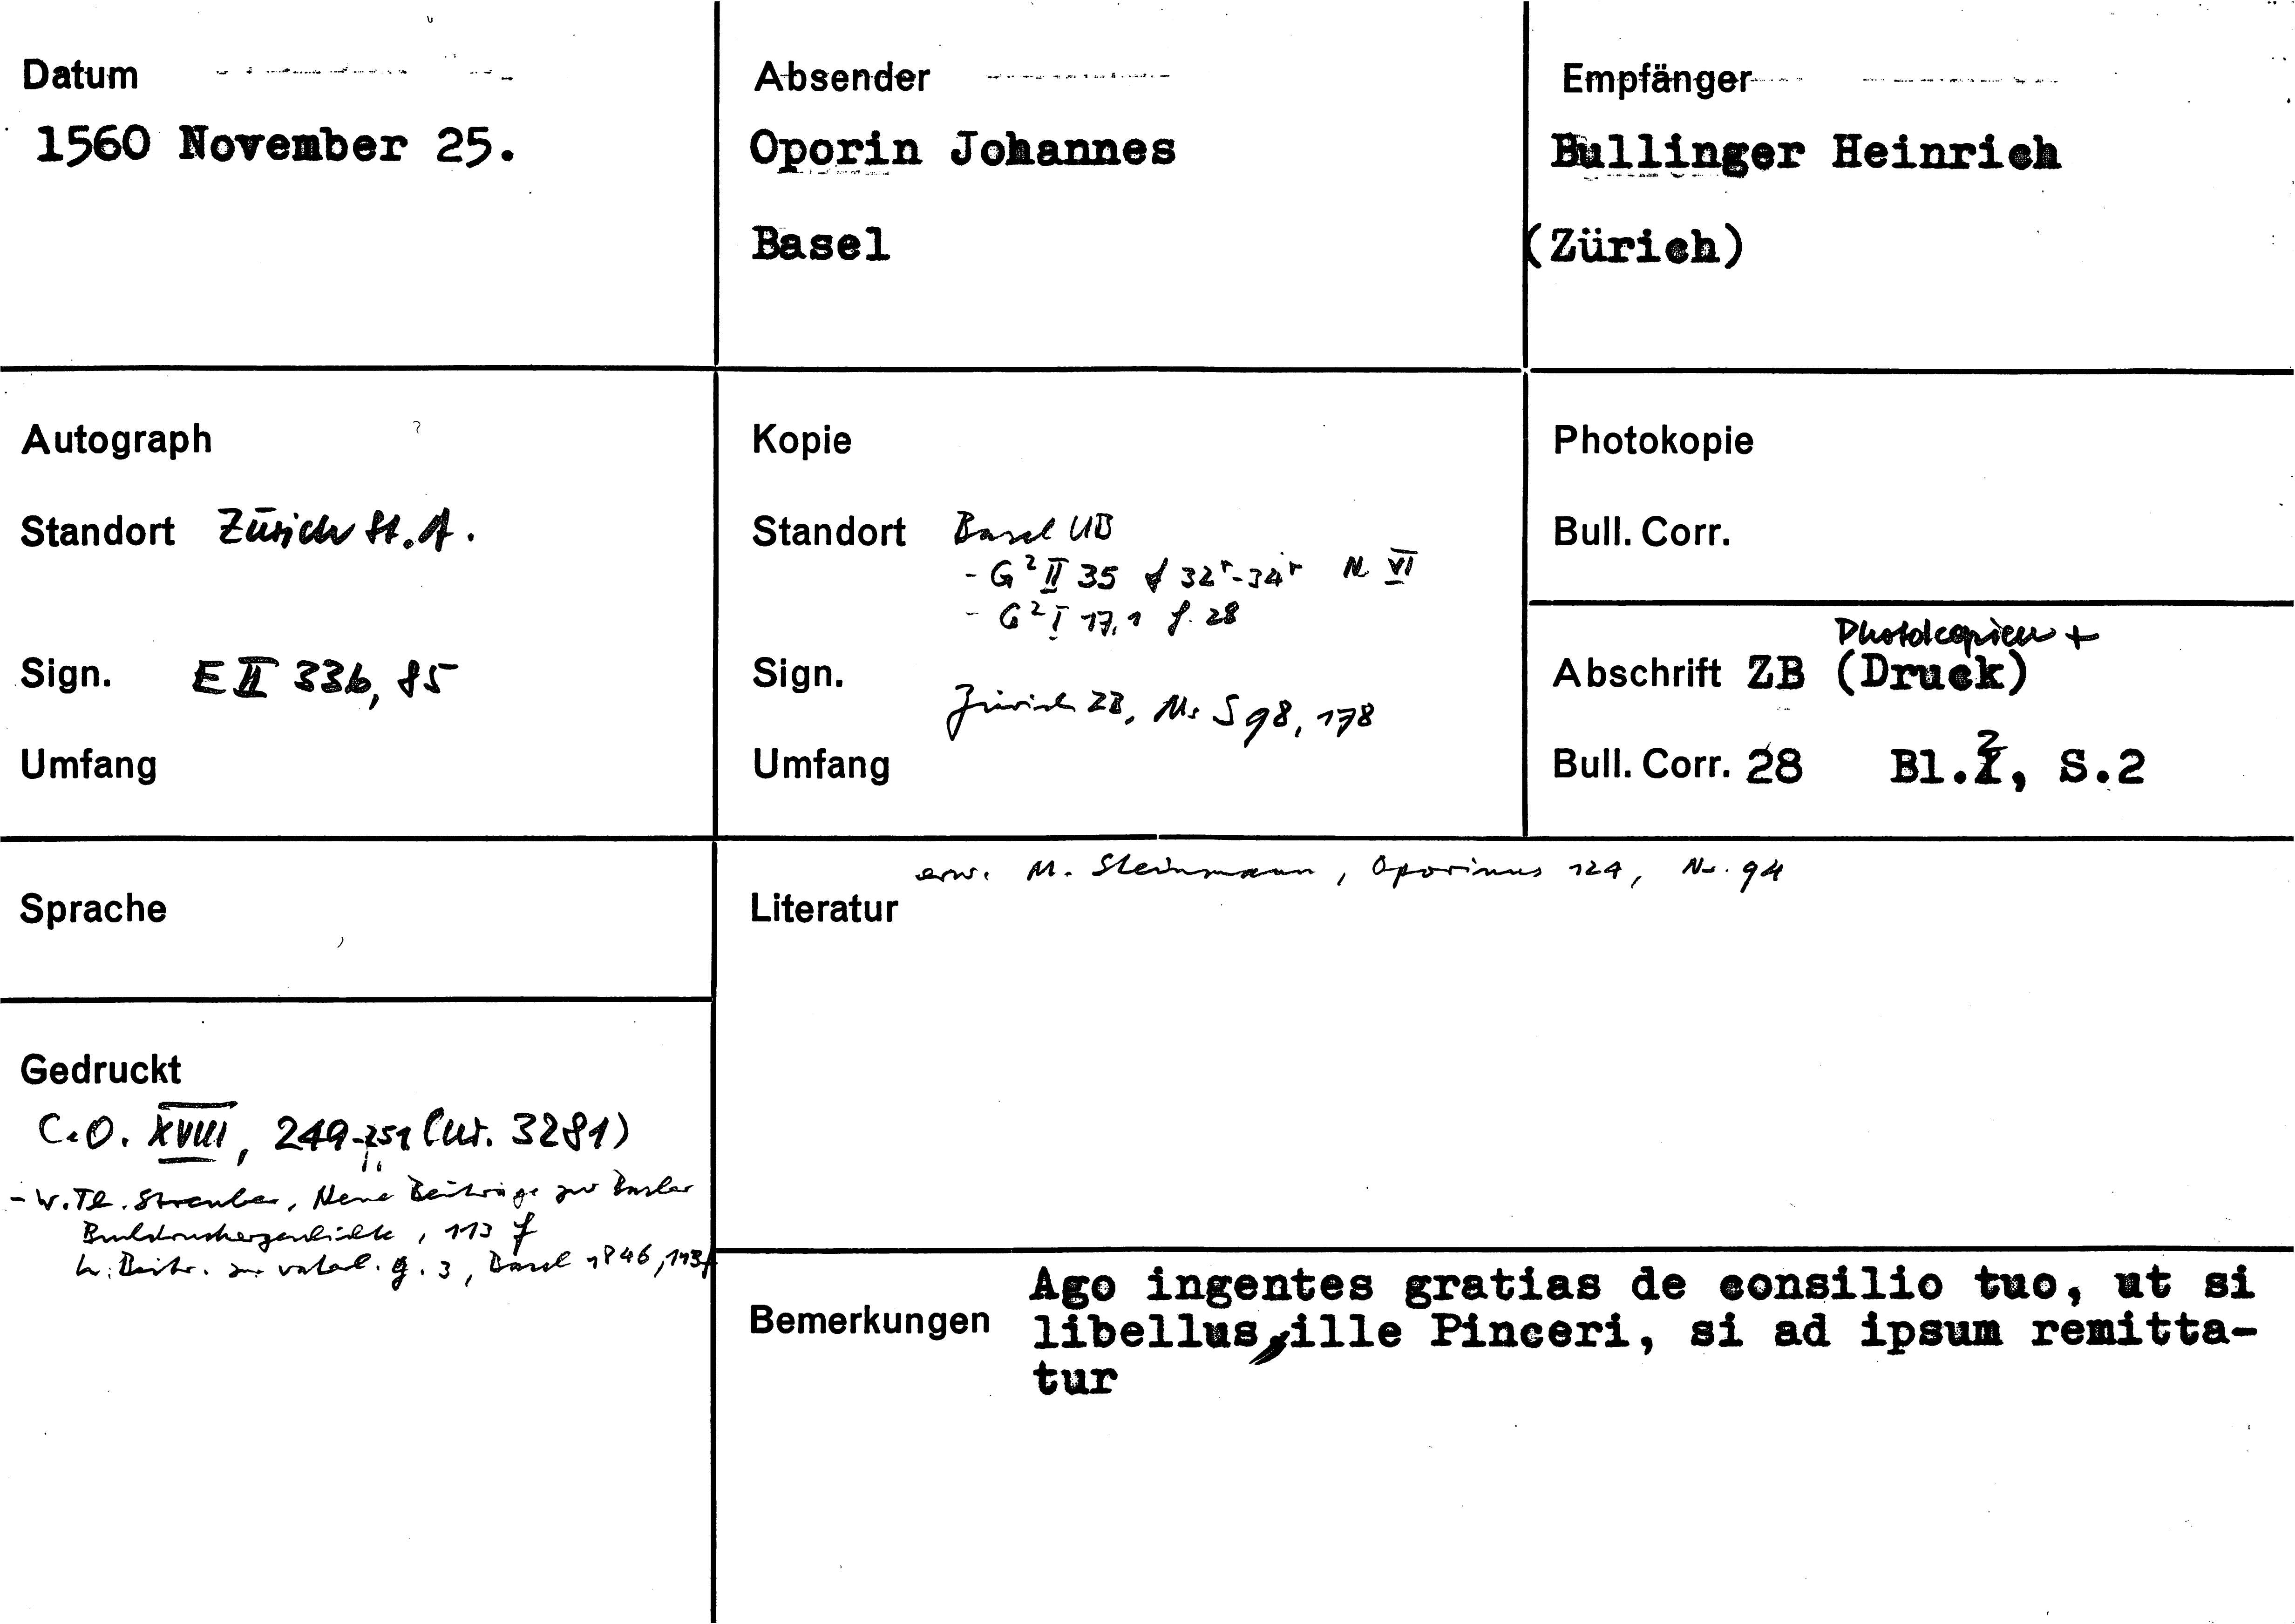 Datum
1560 November 25.
Absender
Oporin Johannes
Basel
Empfänger
Bullinger Heinrich
(Zürich)
Autograph
Standort Zürich St.A.
Sign. E II 336, 85
Umfang
Kopie
Standort Basel UB
- G² II 35 f 32r-34r N VI
- G² I 17,1 f. 28
Sign.
Zürich ZB, Ms S 98, 178
Umfang
Photokopie
Bull. Corr.
Photokopien +
Abschrift ZB (Druck)
Bull. Corr. 28 Bl.2, S.2
Sprache
erw. M. Steinmann, Oporinus 124, Nr. 94
Literatur
Gedruckt
C.O. XVIII, 249-251 (Nr. 3281)
- W. Th. Streuber, Neue Beiträge zur Basler
Buchdruckergeschichte, 113 f
in: Beitr. zur vaterl. G. 3, Basel 1846, 113f
Bemerkungen
Ago ingentes gratias de consilio tuo, ut si
libellus, ille Pinceri, si ad ipsum remitta-
tur